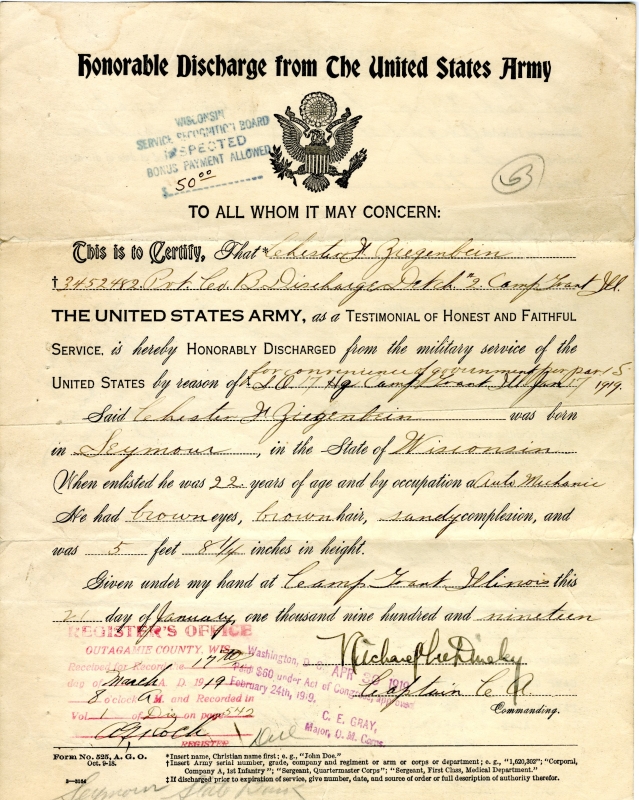 Honorable Discharge from The United States Army
WISCONSIN
SERVICE RECOGNITION BOARD
INSPECTED
BONUS PAYMENT ALLOWED
$ 50 00
TO ALL WHOM IT MAY CONCERN:
This is to Certify, That * Chester H Ziegenbein
† 3452482 Pvt. Co. B. Discharge Detch #2 Camp Grant Ill.
THE UNITED STATES ARMY, as a TESTIMONIAL OF HONEST AND FAITHFUL
SERVICE, is hereby HONORABLY DISCHARGED from the military service of the
for convenience of government per par 5
UNITED STATES by reason of ‡ S.O. 17 Hq. Camp Grant Ill Jan 17 1919.
Said Chester H Ziegenbein was born
in Seymour, in the State of Wisconsin
When enlisted he was 22 years of age and by occupation a Auto Mechanic
He had brown eyes, brown hair, sandy complexion, and
was 5 feet 8¼ inches in height.
Given under my hand at Camp Grant, Illinois this
21 day of January, one thousand nine hundred and nineteen
REGISTER'S OFFICE
OUTAGAMIE COUNTY, WIS.
Received for Record the 17th
day of March A. D. 1919
8 o'clock A M. and Recorded in
Vol 1 of Dis on page 542
REGISTER
Washington, D. C. APR 30 1919
Paid $60 under Act of Congress, approved
February 24th, 1919.
C. E. GRAY,
Major, Q. M. Corps.
Captain C A
Commanding.
Form No. 525, A. G. O.
Oct. 9-18.
*Insert name, Christian name first; e. g., "John Doe."
†Insert Army serial number, grade, company and regiment or arm or corps or department; e. g., "1,620,302"; "Corporal,
Company A, 1st Infantry"; "Sergeant, Quartermaster Corps"; "Sergeant, First Class, Medical Department."
‡If discharged prior to expiration of service, give number, date, and source of order or full description of authority therefor.
Seymour State Bank